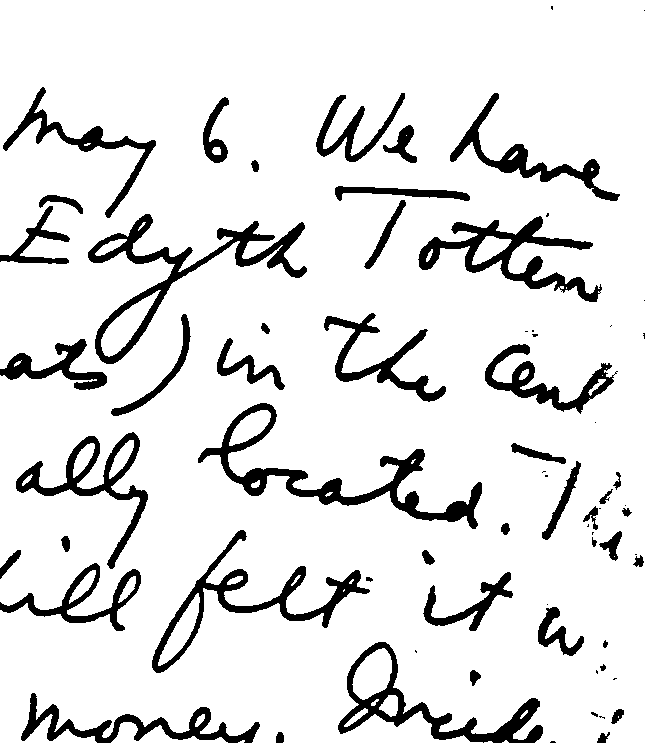 May 6. We have
Edyth Totten
ats) in the Cent
ally located. Thi
ill felt it w
money. Incide